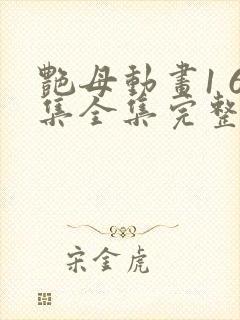 艷母動畫1 6
集全集完整
宋金虎